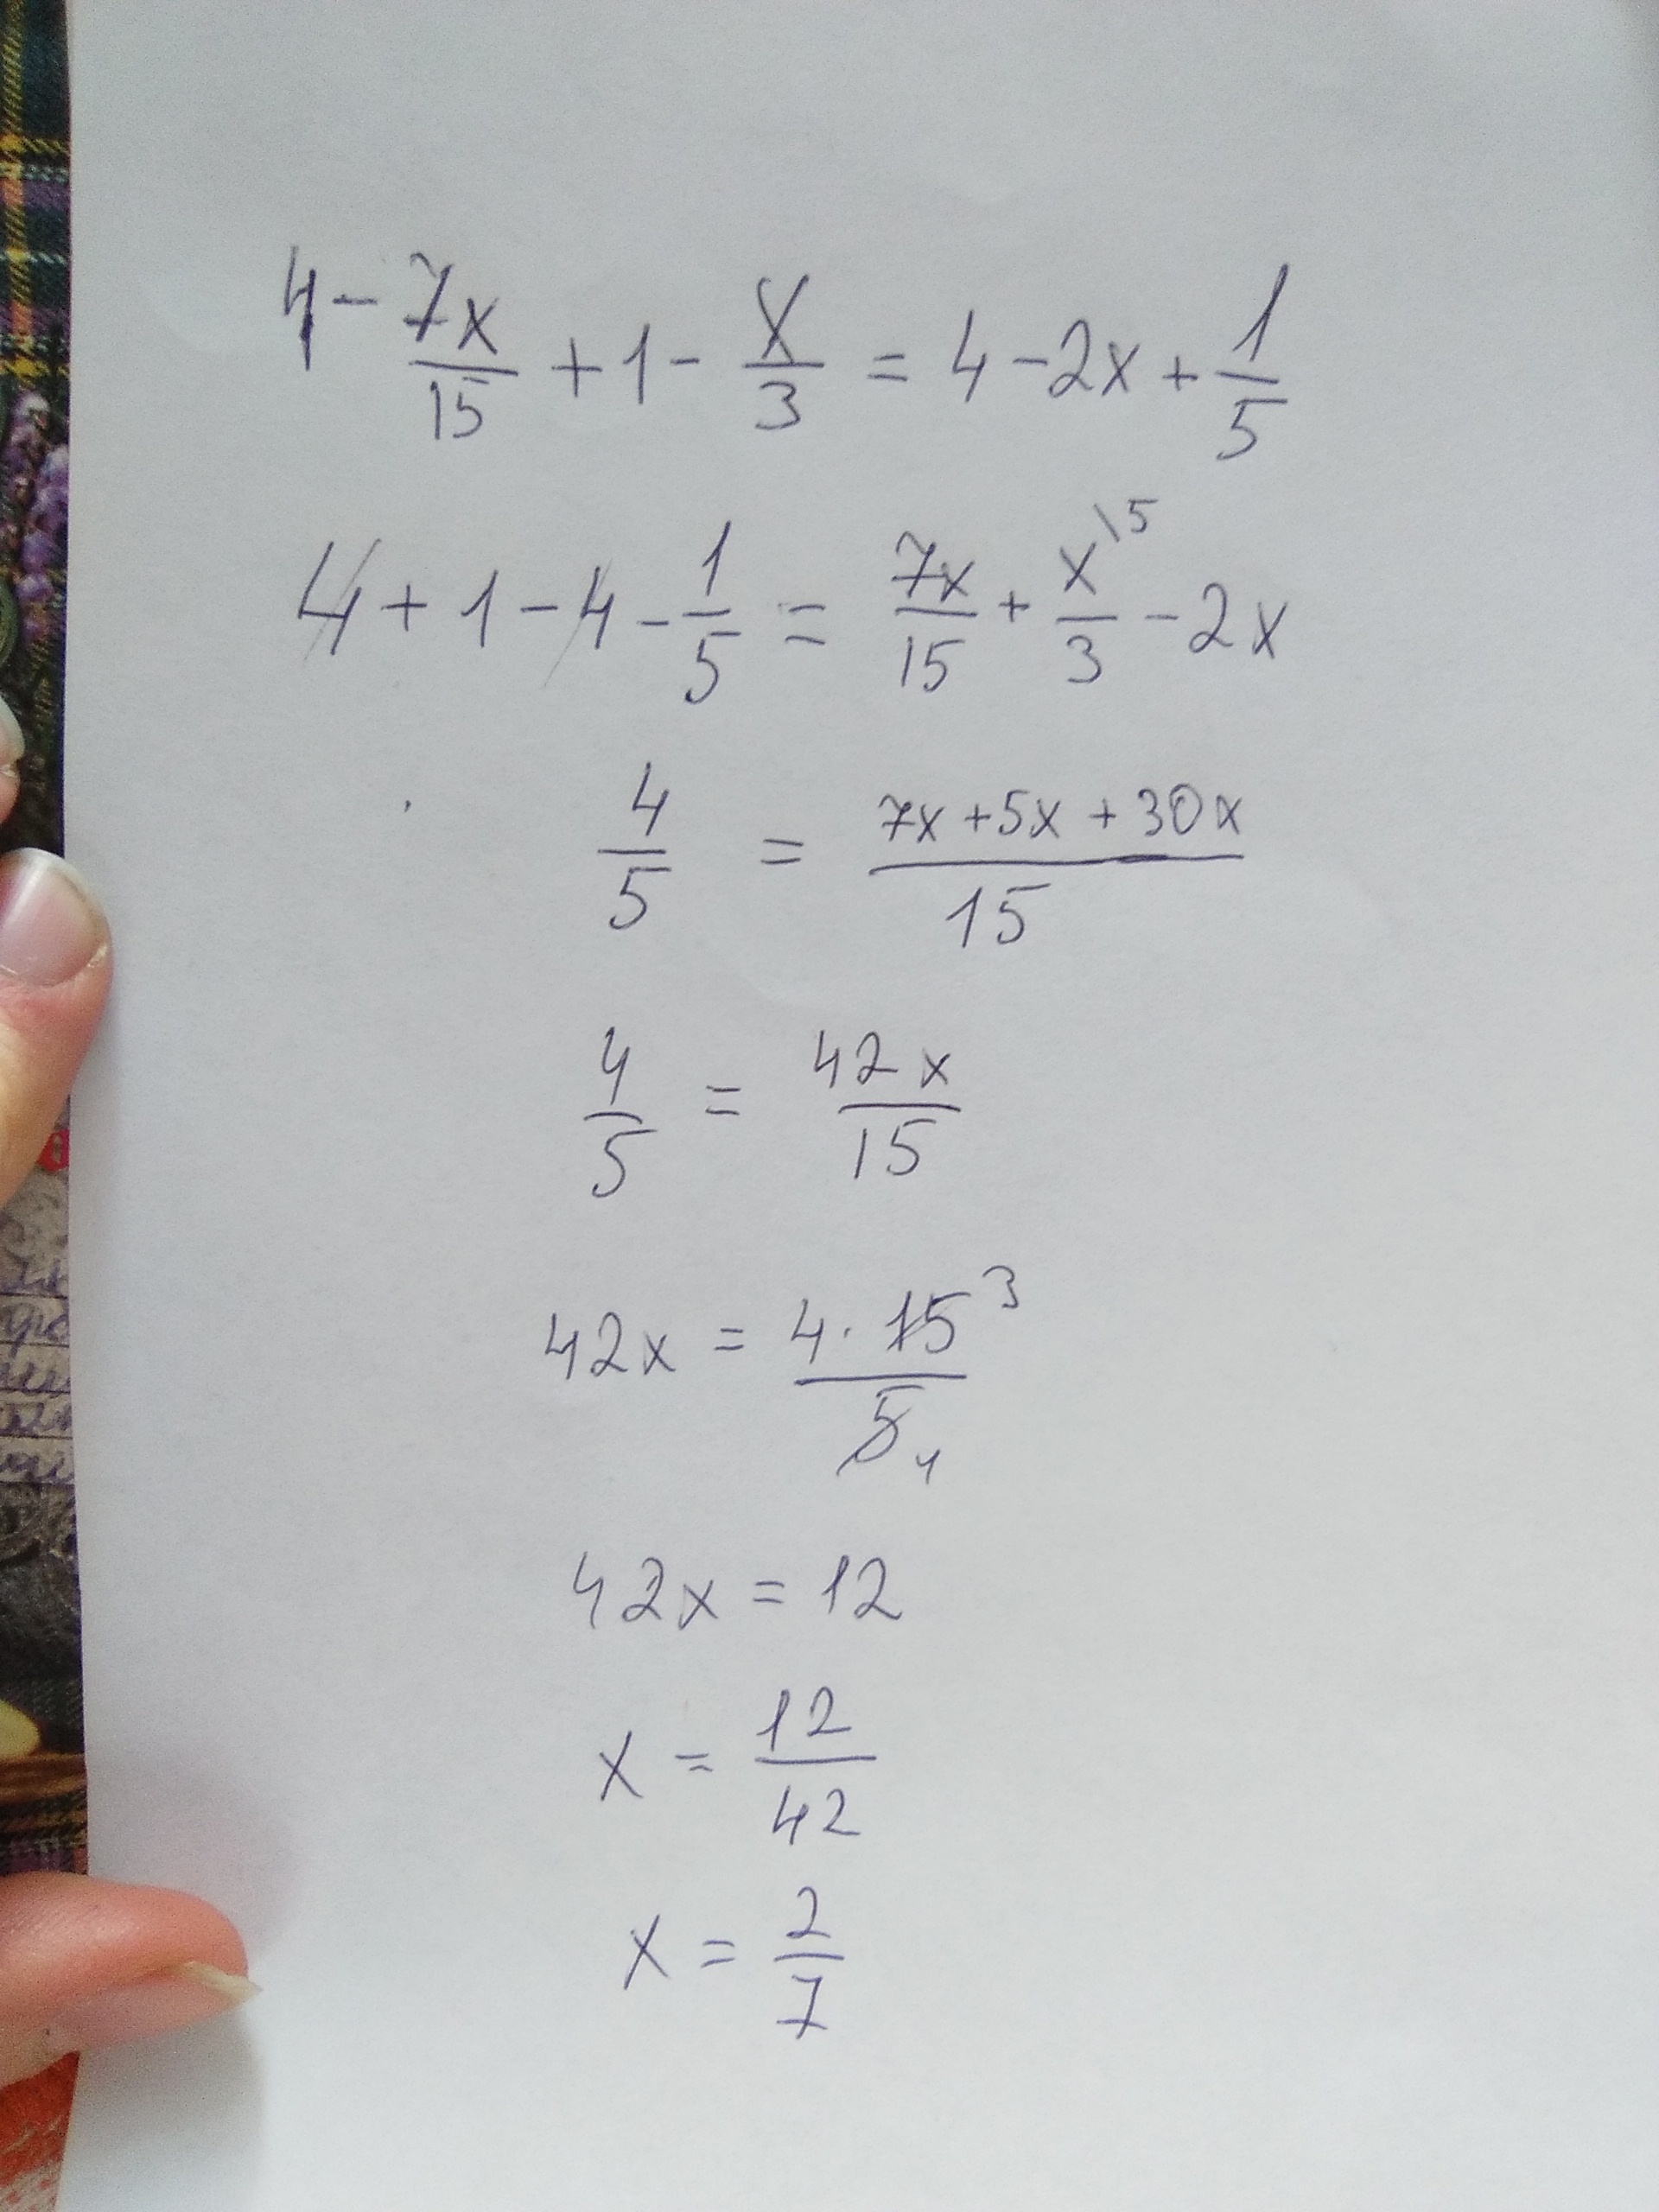 4 - 7x/15 + 1 - x/3 = 4 - 2x + 1/5
4 + 1 - 4 - 1/5 = 7x/15 + x\5/3 - 2x
4/5 = (7x + 5x + 30x)/15
4/5 = 42x/15
42x = (4 · 15 3)/(5 1)
42x = 12
x = 12/42
x = 2/7